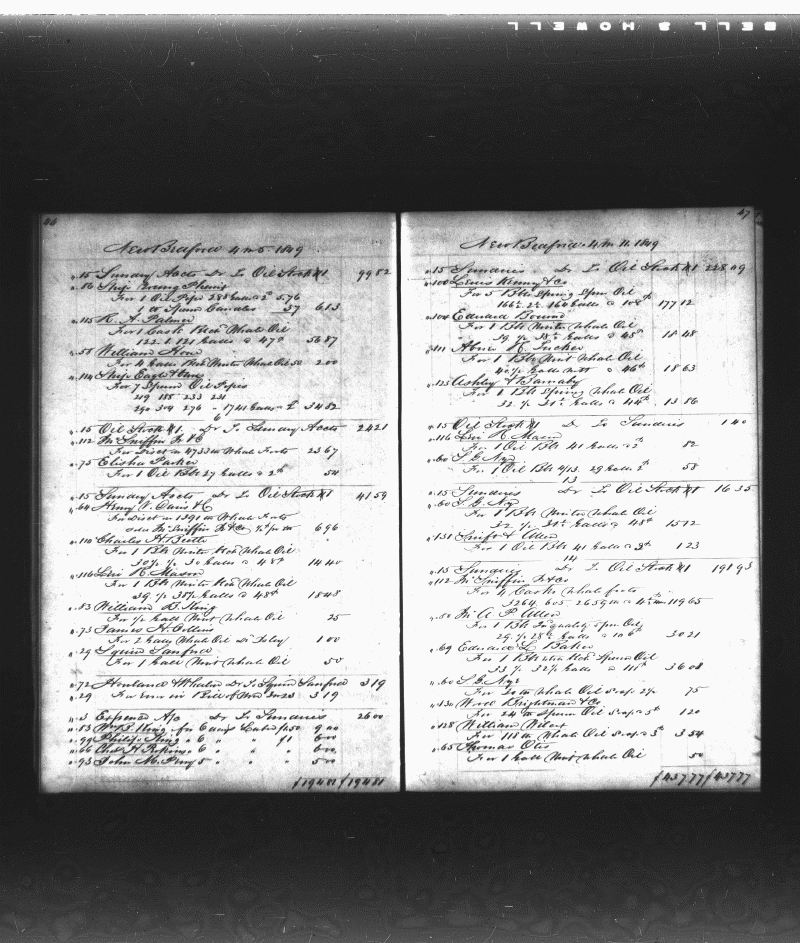 BELL & HOWELL
46
New Bedford 4 mo 5. 1849
15 Sundry Accts Dr To Oil Stock #1 99 82
86 Ship Young Phenix
For 1 Oil Pipe 288 Galls a 2¢ 5.76
2 lb Sperm Candles 37 6 13
115 H. A. Palmer
For 1 Cask Blch Whale Oil
122. 1. 121 Galls a 47¢ 56 87
58 William Howe
For 4 Galls Whale Oil 50 2 00
114 Ship Eagle
For 7 Sperm Oil Pipes
219 188 233 231
290 304 276 - 1741 Galls a 2 34 82
6
15 Oil Stock #1 Dr To Sundry Accts 24 21
112 Mc Sniffin Jr & Co
For Disct on 4733 lb Whale Foots 23 67
75 Elisha Parker
For 1 Oil Bbl 27 Galls a 2¢ 54
15 Sundry Accts Dr To Oil Stock #1 41 59
64 Henry V. Davis & Co
For Disct on 1391 lb Whale Foots
Mc Sniffin Jr & Co 6 96
110 Charles H. Beetle
For 1 Bbl Winter Blch Whale Oil
30 Galls a 48¢ 14 40
116 Levi R. Mason
For 1 Bbl Winter Blch Whale Oil
39 ½ 38½ Galls a 48¢ 18 48
83 William B. King
For ½ Gall Wint Whale Oil 25
73 James H. Collins
For 2 Galls Whale Oil 1 00
29 Squire Sanford
For 1 Gall Wint Whale Oil 50
72 Howland W Dr To Squire Sanford 3 19
29 For error in Bill of 3 19
3 Expense A/c Dr To Sundries 26 00
83 Wm B. King for 6 9 00
99 Philip King " 6 " " $1 6 00
66 Chas H. " 6 " " " 6 00
93 John M. Perry 5 " " " 5 00
/19481/19481
47
New Bedford. 4 m 11. 1849
15 Sundries Dr To Oil Stock #1 228 09
100 Lewis Kenny & Co
For 5 Bbls Spring Spm Oil
166½ 2½ 164 Galls a 108¢ 177 12
104 Edward Bound
For 1 Bbl Winter Whale Oil
39 ½ 38½ Galls a 48¢ 18 48
111 Abner R. Tucker
For 1 Bbl Wint Whale Oil
40½ Galls a 46¢ 18 63
123 Ashley & Barnaby
For 1 Bbl Spring Whale Oil
32 ½ 31½ Galls a 44¢ 13 86
15 Oil Stock #1 Dr To Sundries 1 40
116 Levi R. Mason
For 1 Oil Bbl 41 Galls a 2¢ 82
60 S. G. Nye
For 1 Oil Bbl 29 Galls a 2¢ 58
13
15 Sundries Dr To Oil Stock #1 16 35
60 S. G. Nye
For 1 Bbl Winter Whale Oil
Galls a 48¢ 15 12
131 Swift & Allen
For 1 Oil Bbl 41 Galls a 3¢ 1 23
14
15 Sundries Dr To Oil Stock #1 191 93
112 Mc Sniffin Jr & Co
For 4 Casks Whale foots
3264. 605. 2659 lb a 4½ 119 65
80 A P Allen
For 1 Bbl quality Spm Oil
29 ½ 28½ Galls a 106¢ 30 21
69 Edward L. Baker
For 1 Bbl Wtr Blch Sperm Oil
33 ½ 32½ Galls a 111¢ 36 08
60 S. G. Nye
For 30 lb Whale Oil Soap 2½ 75
130 Wood Brightman & Co
For 24 lb Sperm Oil Soap a 5¢ 1 20
128 William Wilcox
For 118 lb Whale Oil Soap a 3¢ 3 54
65 Thomas Otis
For 1 Gall Wint Whale Oil 50
/43777/43777